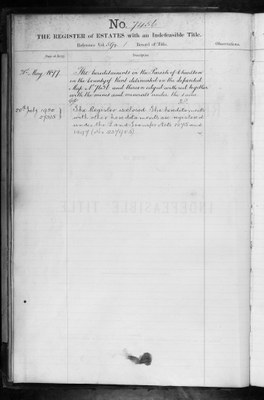 No. 7456
THE REGISTER of ESTATES with an Indefeasible Title.
Reference Vol. Record of Title.
Observations.
Date of Entry.
Description.
May 1877
The hereditaments in the Parish of
in the County of Kent delineated in the deposited
Map and thereon edged with red together
with the mines and minerals under the same
20th July 1900
The Register closed. The hereditaments
with other hereditaments are registered
under the Land Transfer Acts 1875 and
1897